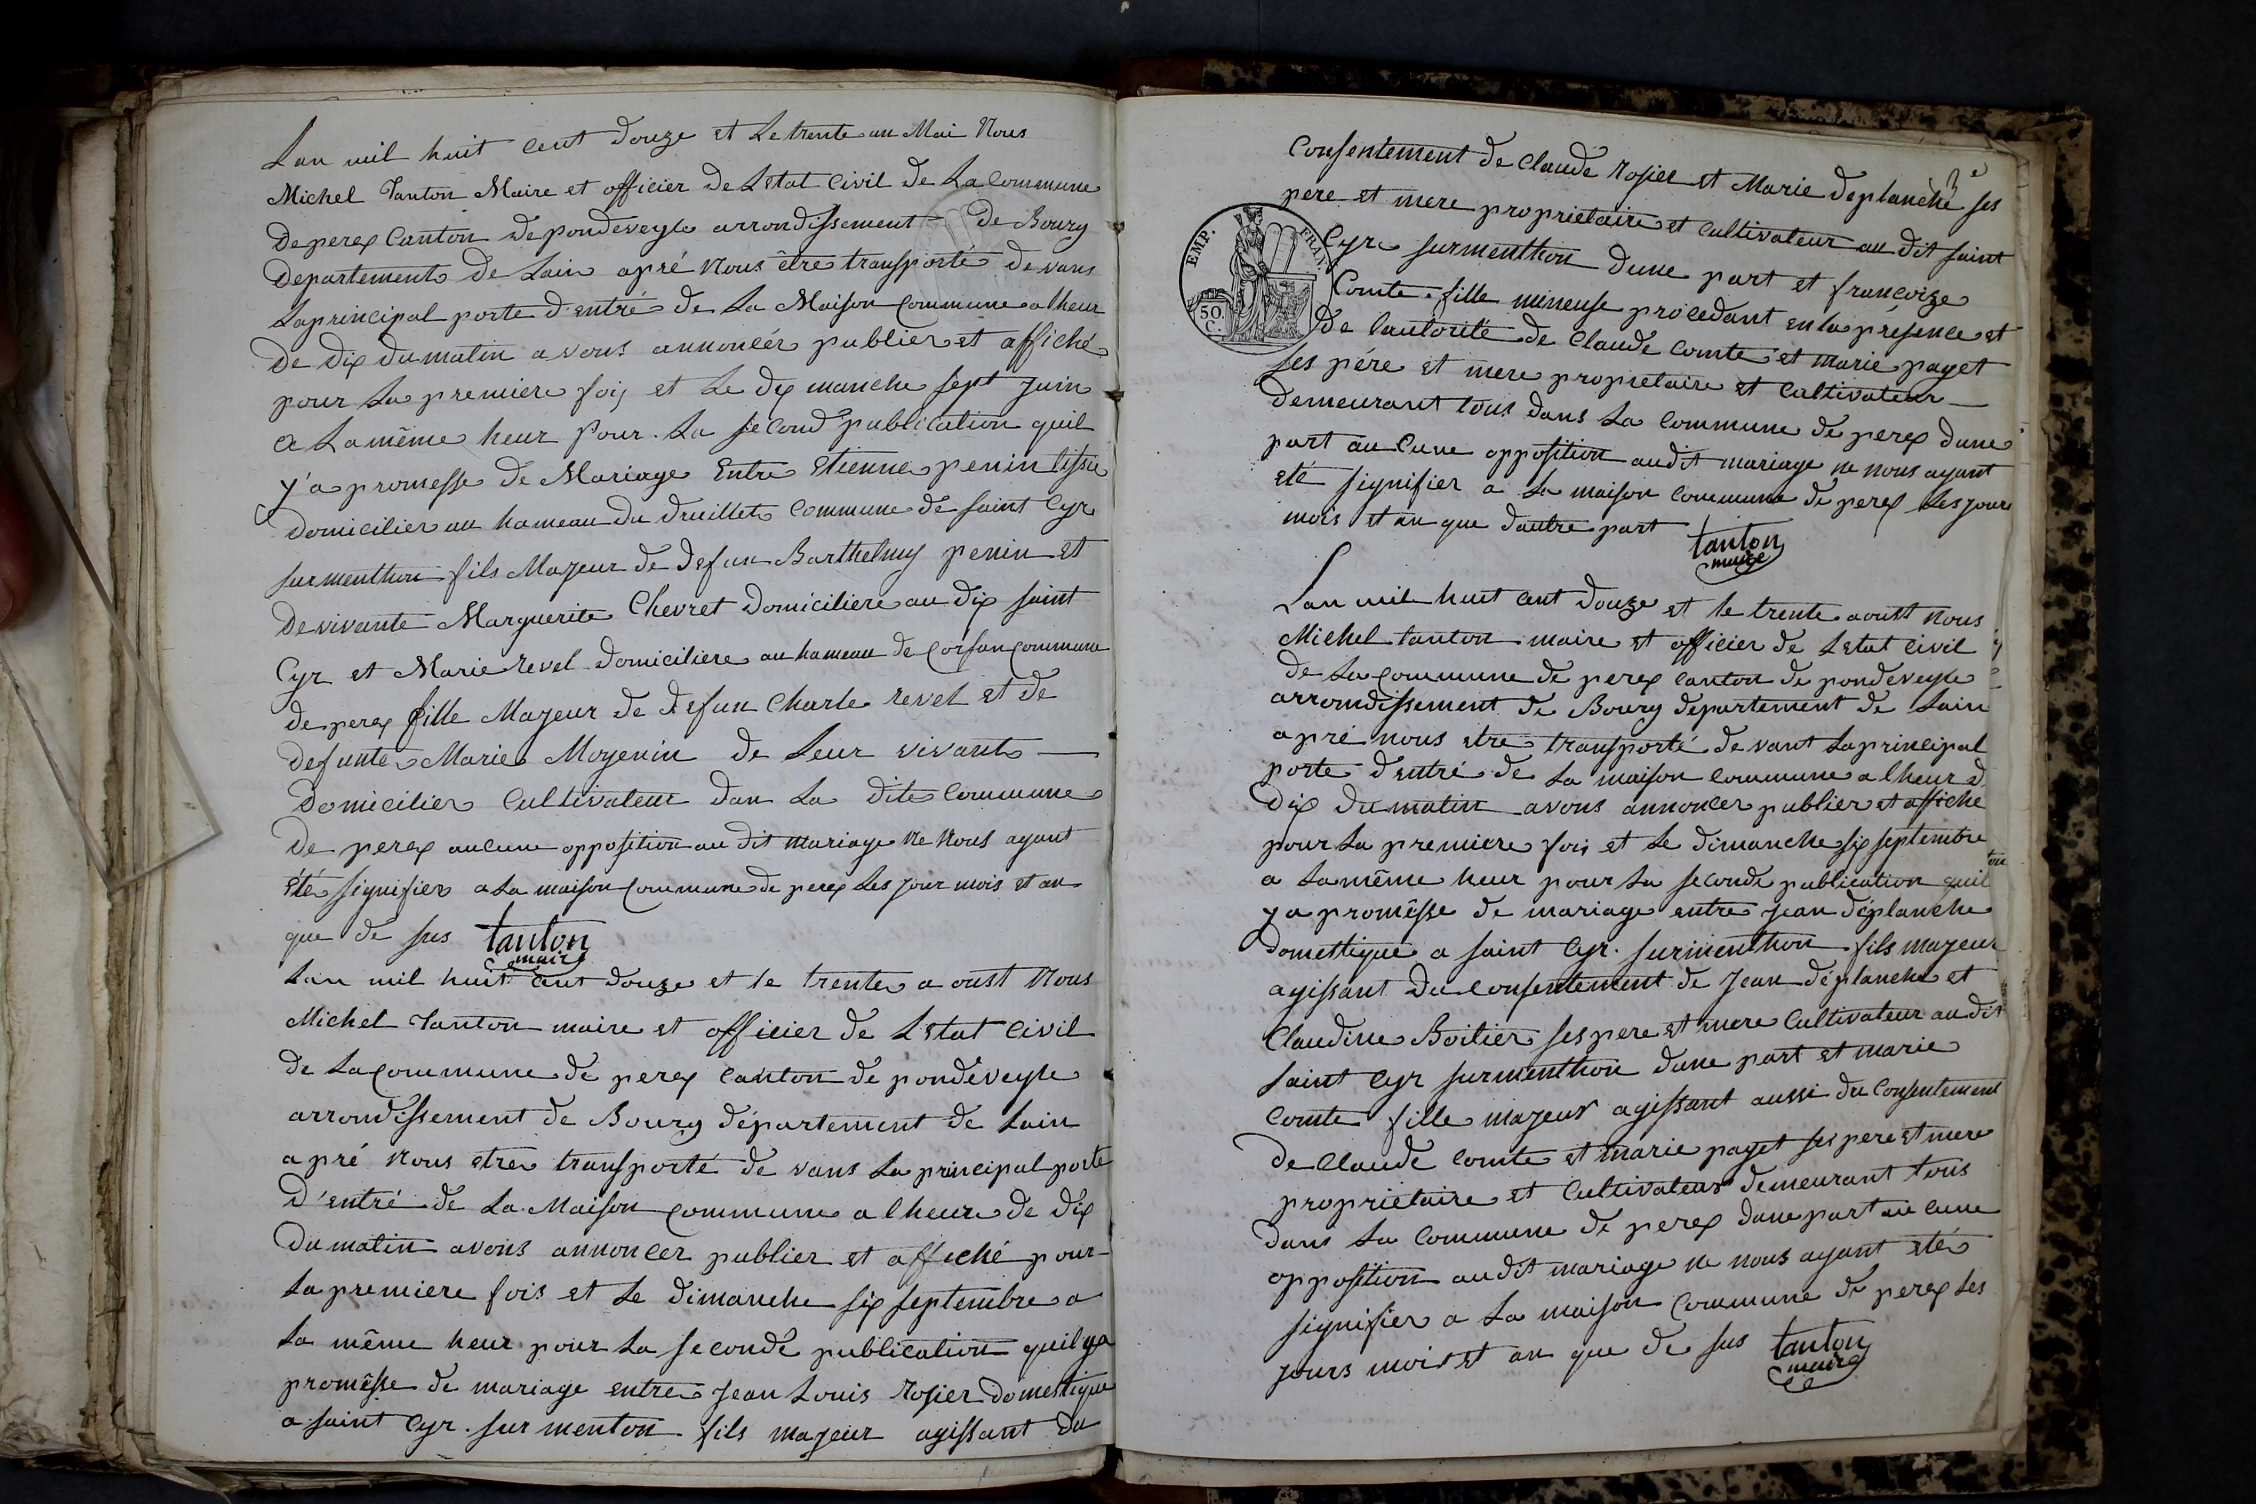 Lan mil huit Cent douze et Le trente un Mai Nous
Michel Tanton Maire et officier De Letat Civil de La Commune
De perex Canton de pondeveyle arrondissement de Bourg
Departement de Lain apré Nous être transporté de vans
La principal porte d'entré de La Maison Commune a lheur
De dix du matin avons annoncér publier et affiché
pour La premiere fois et Le dix manche sept Juin
a La même heur Pour La second publication quil
y'a promesse de Mariage Entre Etienne penin tissie
Domicilier au hameau du druillet Commune de saint Cyr
surmenthon fils Mazeur de Defun Barthelmy penin Et
De vivante Marguerite Chevret Domiciliere au dix saint
Cyr et Marie revel Domiciliere au hameau de Corsan Commune
de perex fille Mazeur de defun Charle revel et de
defunte Marie Moyenin de Leur vivant
Domicilier Cultivateur dan La dite Commune
De perex aucune opposition au dit mariage ne Nous ayant
été signifier a La maison Commune de perex Les jour mois et an
que de sus tanton
maire
Lan mil huit cent douze et le trente a oust Nous
Michel Tanton maire et officier de L'etat Civil
de La Commune de perex Canton de pondeveyle
arrondissement de Bourg département de Lain
apré Nous etre transporté de vans La principal porte
D'entré de La Maison Commune a lheure de dix
Du matin avons annoncer publier et affiché pour
La premiere fois et Le dimanche six septembre a
La même heur pour La seconde publication quil ya
promêsse de mariage entre Jean Louis Rosier Domestique
a saint Cyr. sur menton fils mazeur agissant du
Consentement de Claude Rosier et Marie deplanche ses
pere et mere proprietaire et cultivateur au dit saint
EMP. FRAN.
50.
C.
Cyr surmenthon dune part et francoise
Comte fille mineuse procedant en la présence et
De lautorité de Claude comte et marie paget
ses pére et mere propietaire et Cultivateur
Demeurant tous dans La Commune de perex dune
part au Cune opposition audit mariage ne nous ayant
eté signifier a La maison Commune de perex Les jour
mois et an que dautre part tanton
maire
Lan mil huit cent douze et le trente aoust nous
Michel tanton maire et officier de L'etat Civil
de La Commune de perex canton de pondeveyle
arrondissement de Bourg département de Lain
apré nous etre transporté de vant La principal
porte d'entré de La maison Commune a lheur d
dix du matin avons annoncer publier et affiché
pour La premiere fois et Le dimanche six septembre
a La même heur pour La seconde publication quil
y a promêsse de mariage entre Jean déplanche
Domestique a saint Cyr. surmenthon fils mazeur
agissant Du Consentement de Jean déplanche et
Claudine Boitier ses pere et mere Cultivateur au dit
saint Cyr surmenthon dune part et marie
Comte fille mazeur agissant aussi du Consentement
De Claude comte et marie paget ses pere et mere
proprietaire et Cultivateur demeurant tous
dans La Commune de perex dune part au Cune
opposition audit mariage ne nous ayant eté
signifier a La maison Commune de perex Les
jours mois et an que de sus tanton
maire